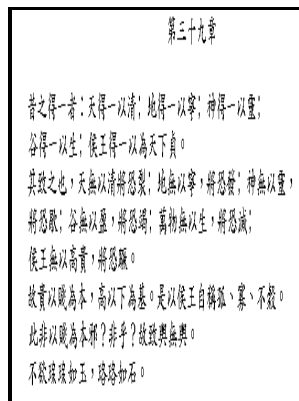 第三十九章
昔之得一者：天得一以清；地得一以寧；神得一以靈；
谷得一以生；侯王得一以為天下貞。
其致之也，天無以清將恐裂；地無以寧，將恐發；神無以靈，
將恐歇；谷無以盈，將恐竭；萬物無以生，將恐滅；
侯王無以高貴，將恐蹶。
故貴以賤為本，高以下為基。是以侯王自稱孤、寡、不穀。
此非以賤為本耶？非乎？故致輿無輿。
不欲琭琭如玉，珞珞如石。